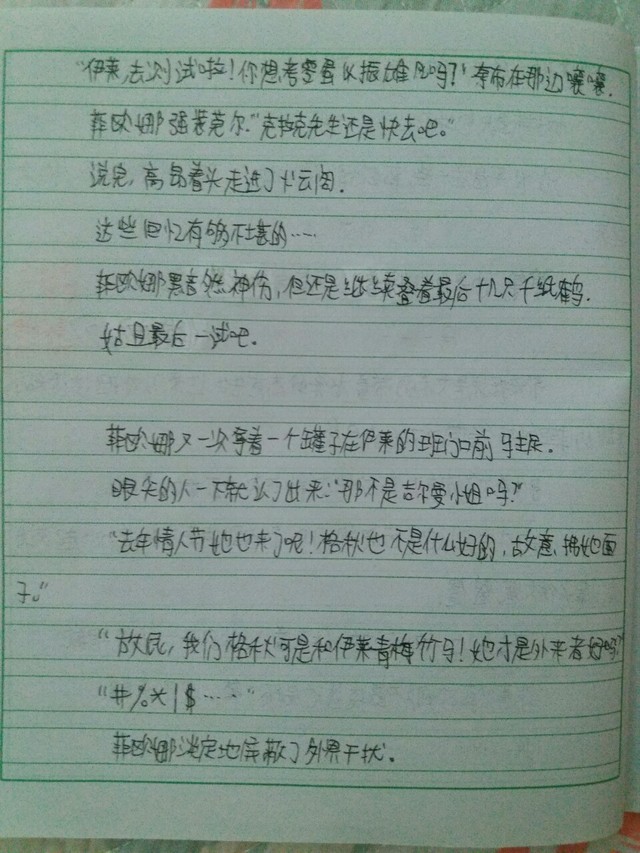 “伊莱,去测试啦!你想考零蛋以振雄风吗?”奈布在那边嚷嚷.
菲欧娜强装莞尔.“克拉克先生还是快去吧。”
说完,高昂着头走进了火云阁.
这些回忆有够不堪的……
菲欧娜黯然神伤,但还是继续叠着最后十几只千纸鹤.
姑且最后一试吧.
菲欧娜又一次拿着一个罐子在伊莱的班门口前驻足.
眼尖的人一下就认了出来:“那不是吉尔曼小姐吗?”
“去年情人节她也来了呢!格秋也不是什么好的,故意拂她面
子。”
“放屁,我们格秋可是和伊莱青梅竹马!她才是外来者好吗?”
“#%*|$……”
菲欧娜淡定地屏蔽了外界干扰.